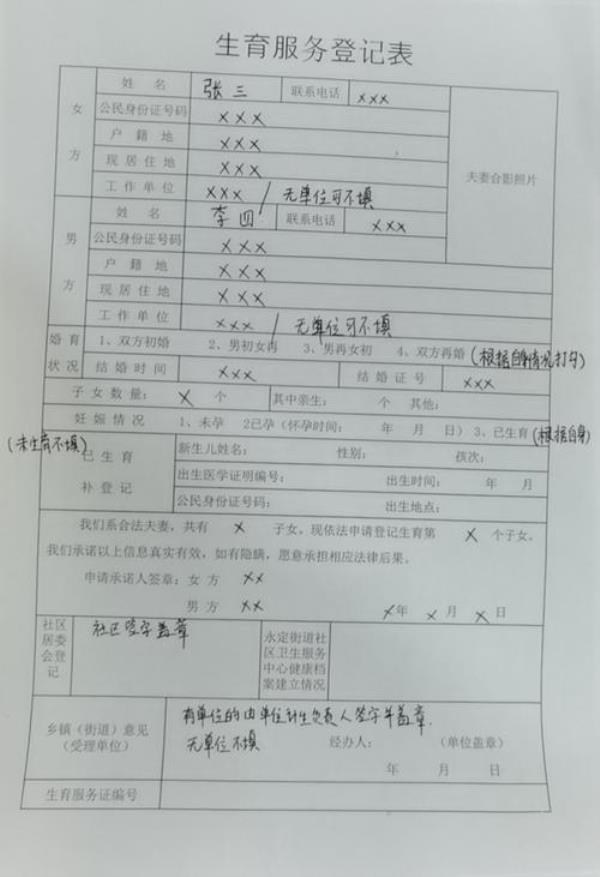 生育服务登记表
女方
姓名 张三 联系电话 xxx
公民身份证号码 xxx
户籍地 xxx
现居住地 xxx
工作单位 xxx / 无单位可不填
夫妻合影照片
男方
姓名 李四 联系电话 xxx
公民身份证号码 xxx
户籍地 xxx
现居住地 xxx
工作单位 xxx / 无单位可不填
婚育状况
1、双方初婚 2、男初女再 3、男再女初 4、双方再婚 (根据自身情况打勾)
结婚时间 xxx 结婚证号 xxx
子女数量: x 个 其中亲生: 个 其他:
妊娠情况 1、未孕 2已孕(怀孕时间: 年 月 日) 3、已生育 (根据自身)
(未生育不填)
已生育补登记
新生儿姓名: 性别: 孩次:
出生医学证明编号: 出生时间: 年 月
公民身份证号码: 出生地点:
我们系合法夫妻,共有 x 子女,现依法申请登记生育第 x 个子女,
我们承诺以上信息真实有效,如有隐瞒,愿意承担相应法律后果。
申请承诺人签章:女方 xx
男方 xx x年 x 月 x 日
社区居委会登记
社区签字盖章
永定街道社区卫生服务中心健康档案建立情况
乡镇(街道)意见
(受理单位)
有单位的由单位计生负责人签字并盖章.
无单位不填 经办人: (单位盖章)
年 月 日
生育服务证编号